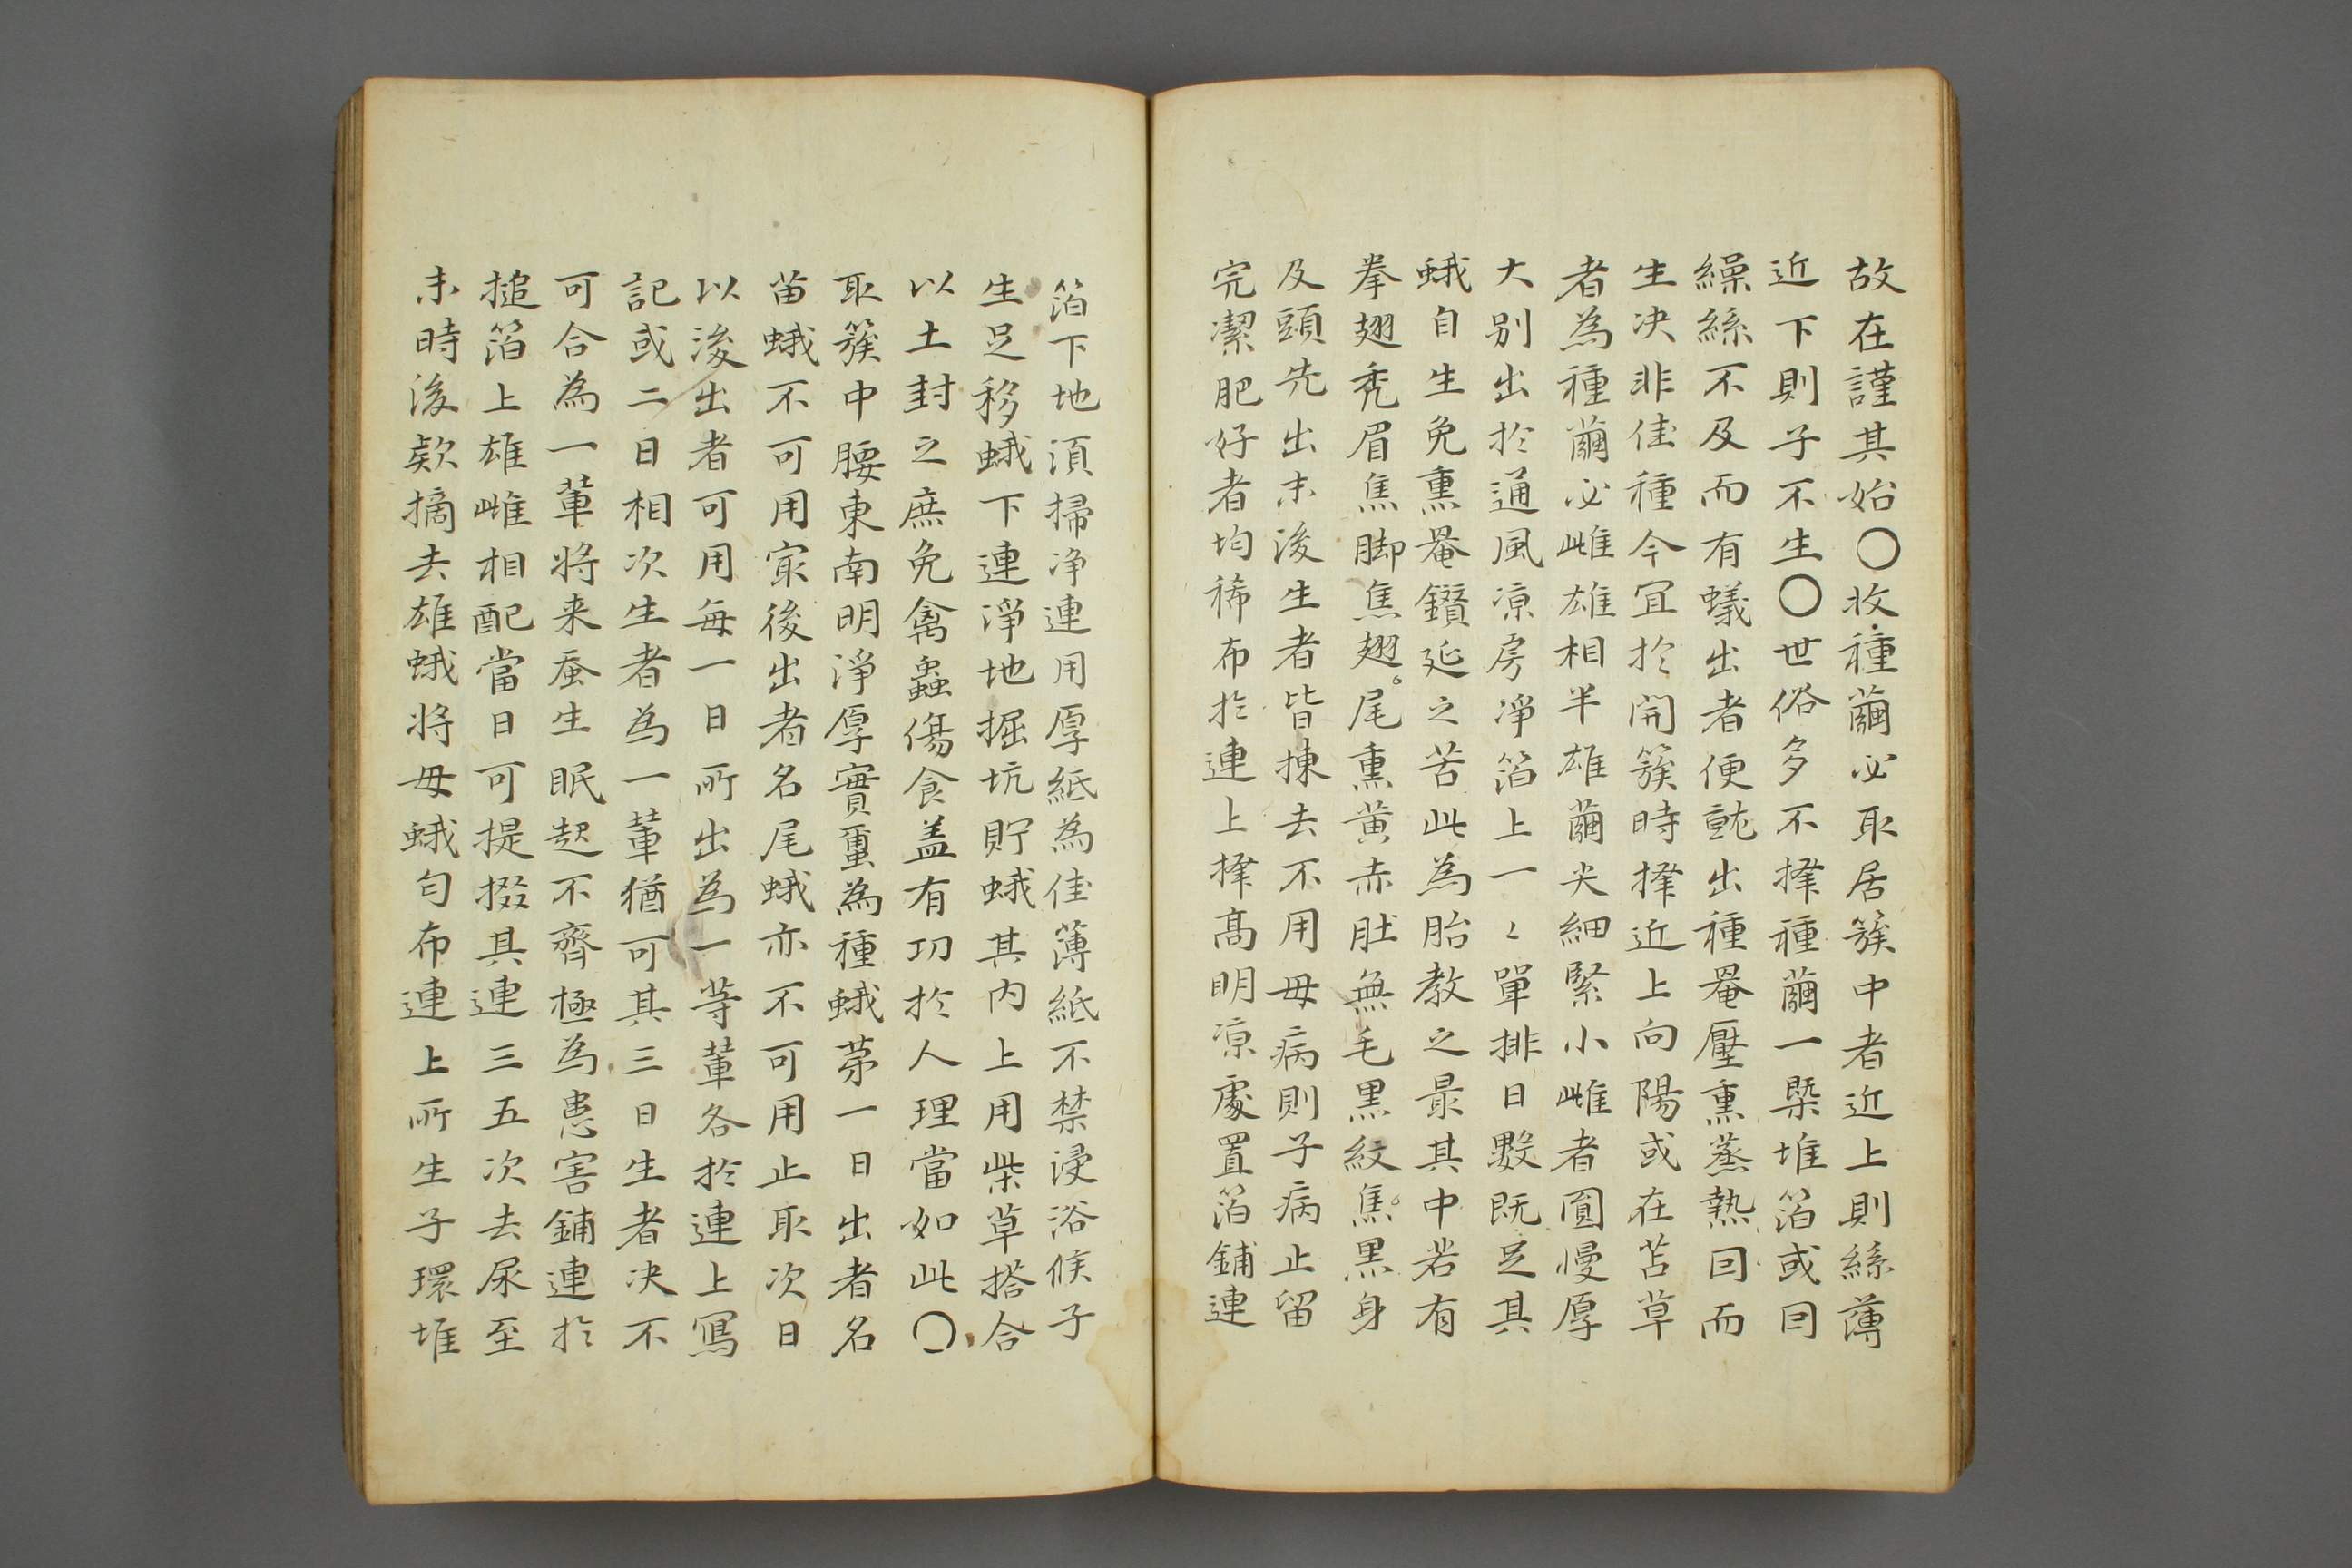 故在謹其始〇收種繭必取居簇中者近上則絲薄
近下則子不生〇世俗多不擇種繭一槩堆箔或因
繰絲不及而有蟻出者便就出種罨壓熏蒸熱因而
生决非佳種今宜於開簇時擇近上向陽或在苫草
者為種繭必雌雄相半雄繭尖細緊小雌者圓慢厚
大别出於通風凉房凈箔上一〻單排日數既足其
蛾自生免熏罨鑽延之苦此為胎教之最其中若有
拳翅禿眉焦脚焦翅。尾熏黄赤肚無毛黒紋焦。黒身
及頭先出末後生者皆揀去不用毋病則子病止留
完潔肥好者均稀布於連上擇髙明凉處置箔鋪連
箔下地須掃净連用厚紙為佳薄紙不禁浸浴候子
生足移蛾下連淨地掘坑貯蛾其内上用柴草搭合
以土封之庶免禽蟲傷食盖有功於人理當如此〇
取簇中腰東南明淨厚實蠒為種蛾苐一日出者名
苗蛾不可用㝡後出者名尾蛾亦不可用止取次日
以後出者可用每一日所出為一等軰各於連上寫
記或二日相次生者為一軰猶可其三日生者决不
可合為一軰将来蚕生眠起不齊極為患害鋪連於
搥箔上雄雌相配當日可提掇其連三五次去尿至
末時後欵摘去雄蛾将毋蛾勻布連上所生子環堆